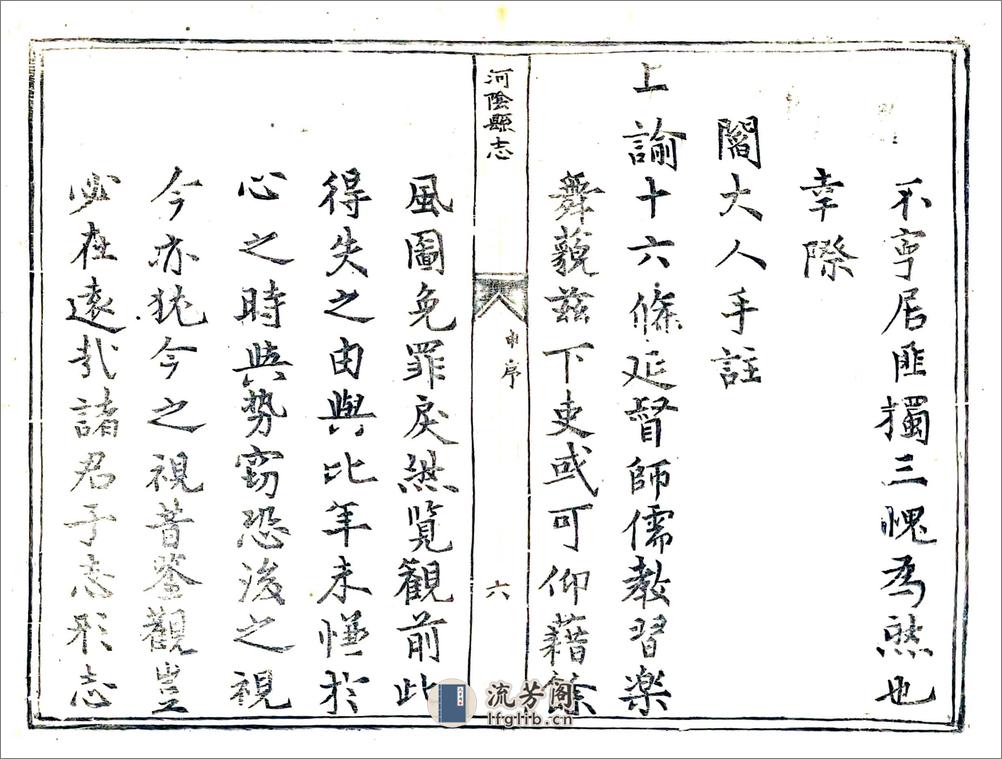 不寧居匪獨三愧為然也
幸際
閻大人手註
上諭十六條延督師儒教習樂
舞藐茲下吏或可仰藉餘
河陰縣志
申序
六
風圖免罪戾然覽觀前此
得失之由與比年未愜於
心之時與勢竊恐後之視
今亦猶今之視昔鉴觀豈
必在遠哉諸君子志形志
流芳阁
lfglib.cn